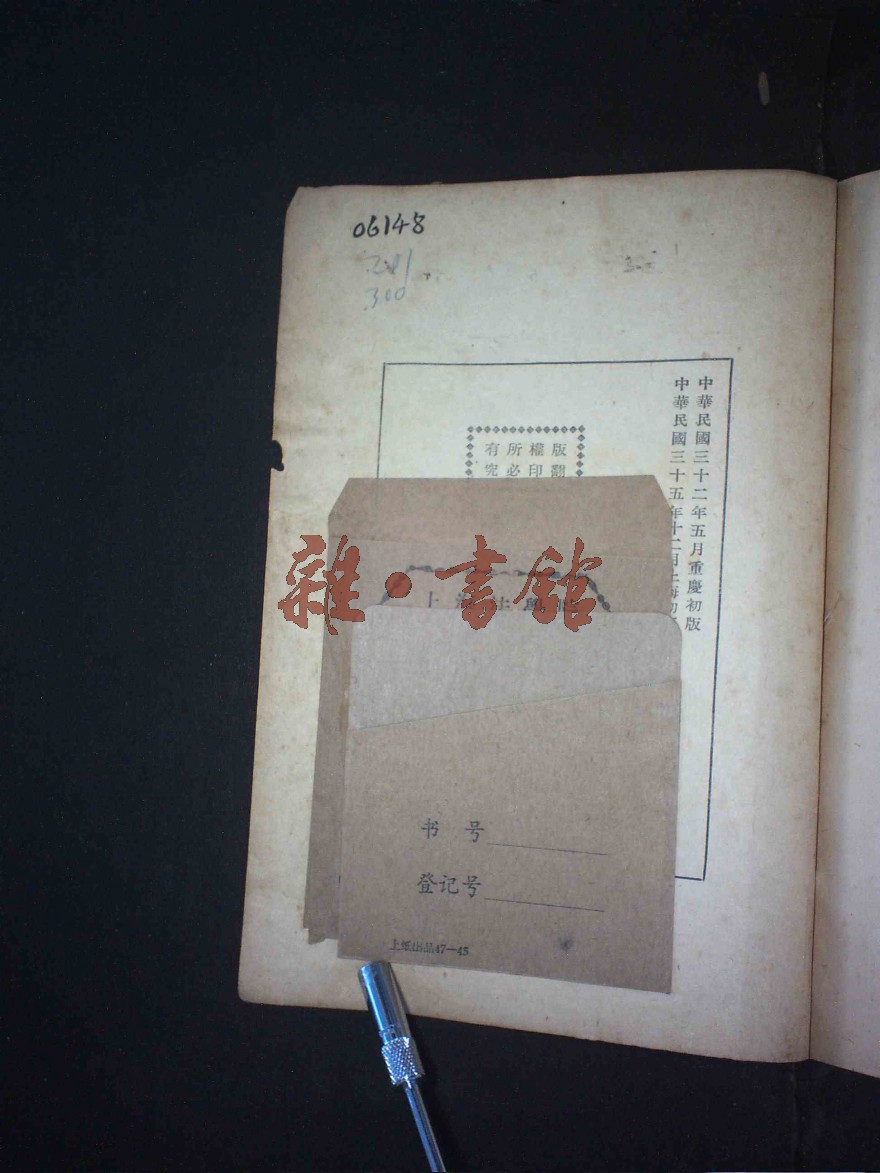 06148
300
中華民國三十二年五月重慶初版
中華民國三十五年十二月上海初
版權所有
翻印必究
雜·書館
上海
书 号
登记号
上纸出品47—45